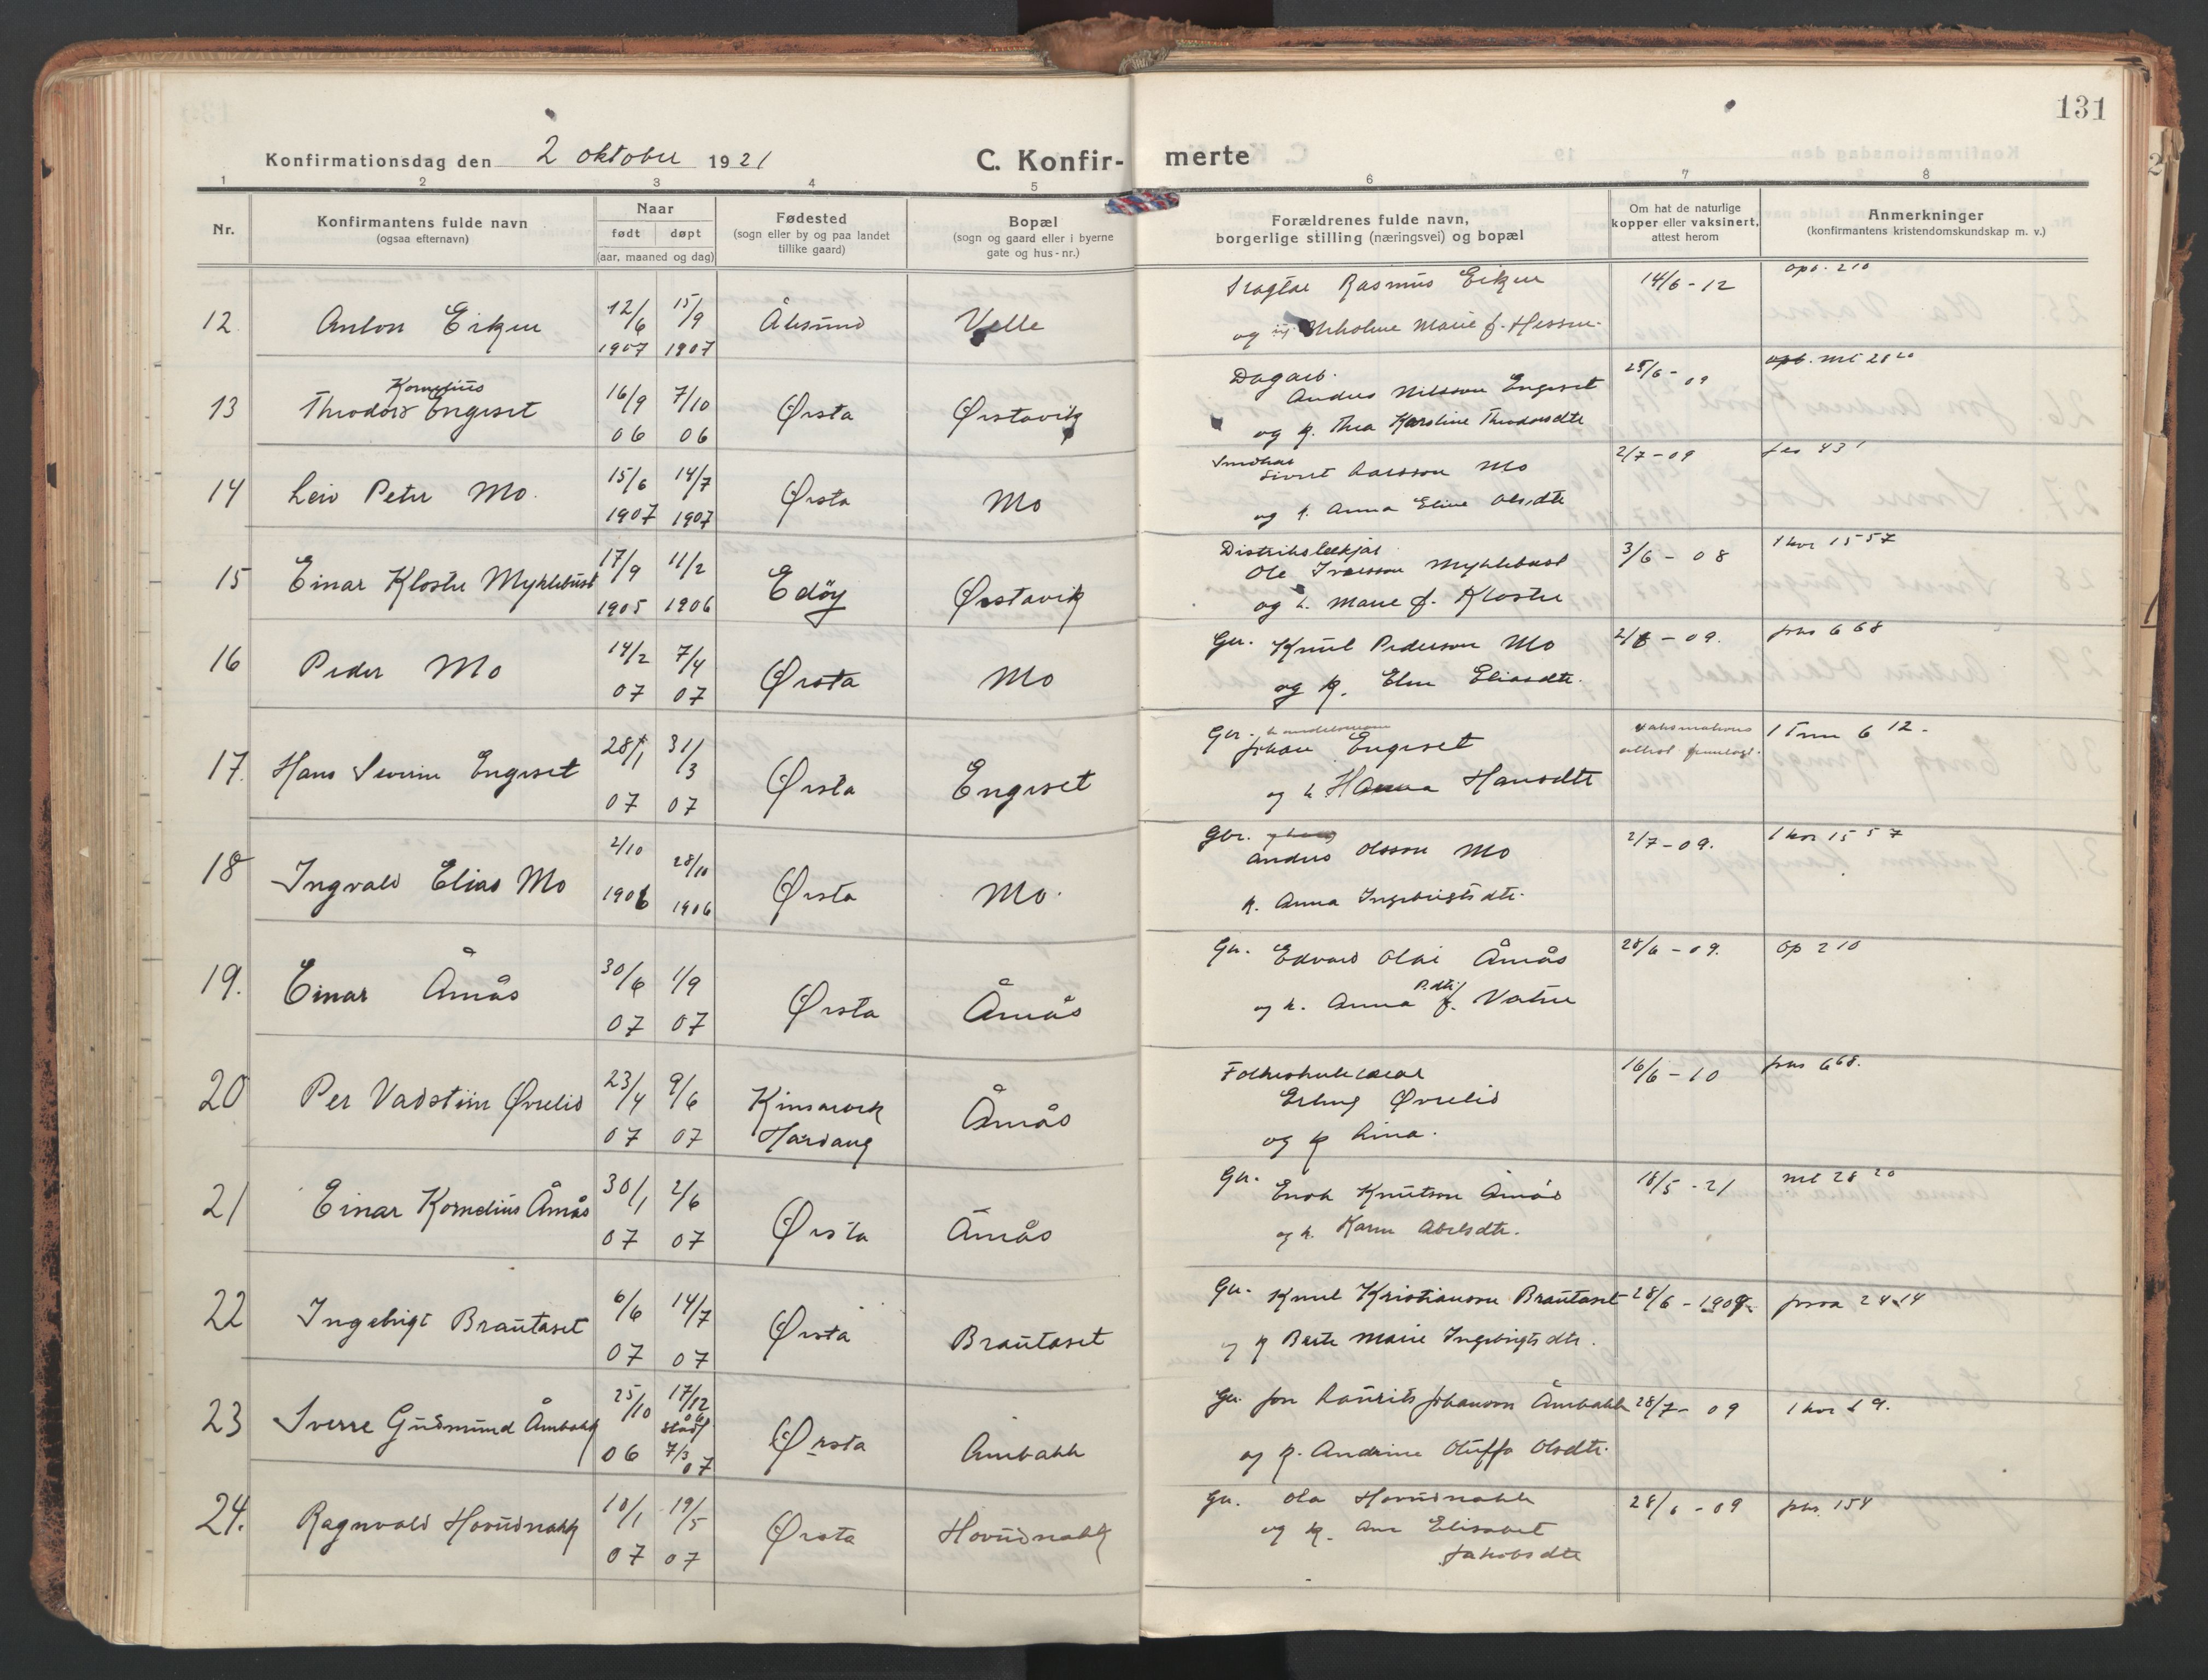 131
Konfirmationsdag den 2 oktober 1921
C. Konfir- merte
1 2 3 4 5 6 7 8
Nr.
Konfirmantens fulde navn
(ogsaa efternavn)
Naar
født døpt
(aar, maaned og dag)
Fødested
(sogn eller by og paa landet
tillike gaard)
Bopæl
(sogn og gaard eller i byerne
gate og hus-nr.)
Forældrenes fulde navn,
borgerlige stilling (næringsvei) og bopæl
Om hat de naturlige
kopper eller vaksinert,
attest herom
Anmerkninger
(konfirmantens kristendomskundskap m. v.)
Rasmus Eiken 14/6 - 12 opb. 210
12 Anton Eiken 12/6 1907 15/9 1907 Ålesund Velle
og Marie f. Hessen.
Dagarb. 25/6 - 09 opb. mt 28 20
Kornelius
13 Theodor Engeset 16/9 06 7/10 06 Ørsta Ørstavik
Anders Nilsson Engeset
og k. Thea Karoline Theodorsdtr
2/7 - 09 jes 43 1
14 Leiv Peter Mo. 15/6 1907 14/7 1907 Ørsta Mo
Sivert Larsson Mo
og k. Anna Eline Olsdtr
Distriktslækjar 3/6 - 08 1 kor 15 57
15 Einar Kloster Myklebust 17/9 1905 11/2 1906 Edöy Ørstavik
Ole Iversson Myklebust
og k. Marie f. Kloster
16 Peder Mo 14/2 07 7/4 07 Ørsta Mo
Gbr. Knut Pederson Mo - 09. joh 6 68
og k. Elen Eliasdtr.
17. Hans Severin Engeset 28/1 07 31/3 07 Ørsta Engeset
Gbr. Johan Engeset 1 Tim 6 12.
og k Hanna Hansdtr
18 Ingvald Elias Mo 2/10 1906 28/10 1906 Ørsta Mo.
Gbr. Anders Olsson Mo 2/7 - 09. 1 kor 15 57
k. Anna Ingebrigtsdtr.
19. Einar Åmås 30/6 07 1/9 07 Ørsta Åmås
Gbr. Edvard Olai Åmås 28/6 - 09. op 2 10
og k. Anna P.dtr f. Vatne
20 Per Vadstein Øvrelid 23/4 07 9/6 07 Kinsarvik
Hardang Åmås
Folkeskulelærar 16/6 - 10 joh 6 68.
Erling Øvrelid
og k Lina.
21 Einar Kornelius Åmås 30/1 07 2/6 07 Ørsta Åmås
Gbr. Enok Knutson Åmås 18/5 - 21 mt 28 20
og k. Karen Abelsdtr.
22 Ingebrigt Brautaset 6/6 07 14/7 07 Ørsta Brautaset
Gbr. Knut Kristianson Brautaset 28/6 - 1909. josva 24 14
og k Berte Marie Ingebrigtsdtr.
23 Sverre Gudmund Åmbakk 25/10 06 17/12 06 stadf 7/3 07 Ørsta Åmbakk
Gbr. Jon Laurits Johanson Åmbakk 28/7 - 09 1 kor 1 9.
og k. Andrine Oluffa Olsdtr.
24. Ragnvald Hovudnakk 10/1 07 19/5 07 Ørsta Hovudnakk
Gbr. Ola Hovudnakk 28/6 - 09 joh. 15 4
og k. Ane Elisabet
Jakobsdtr